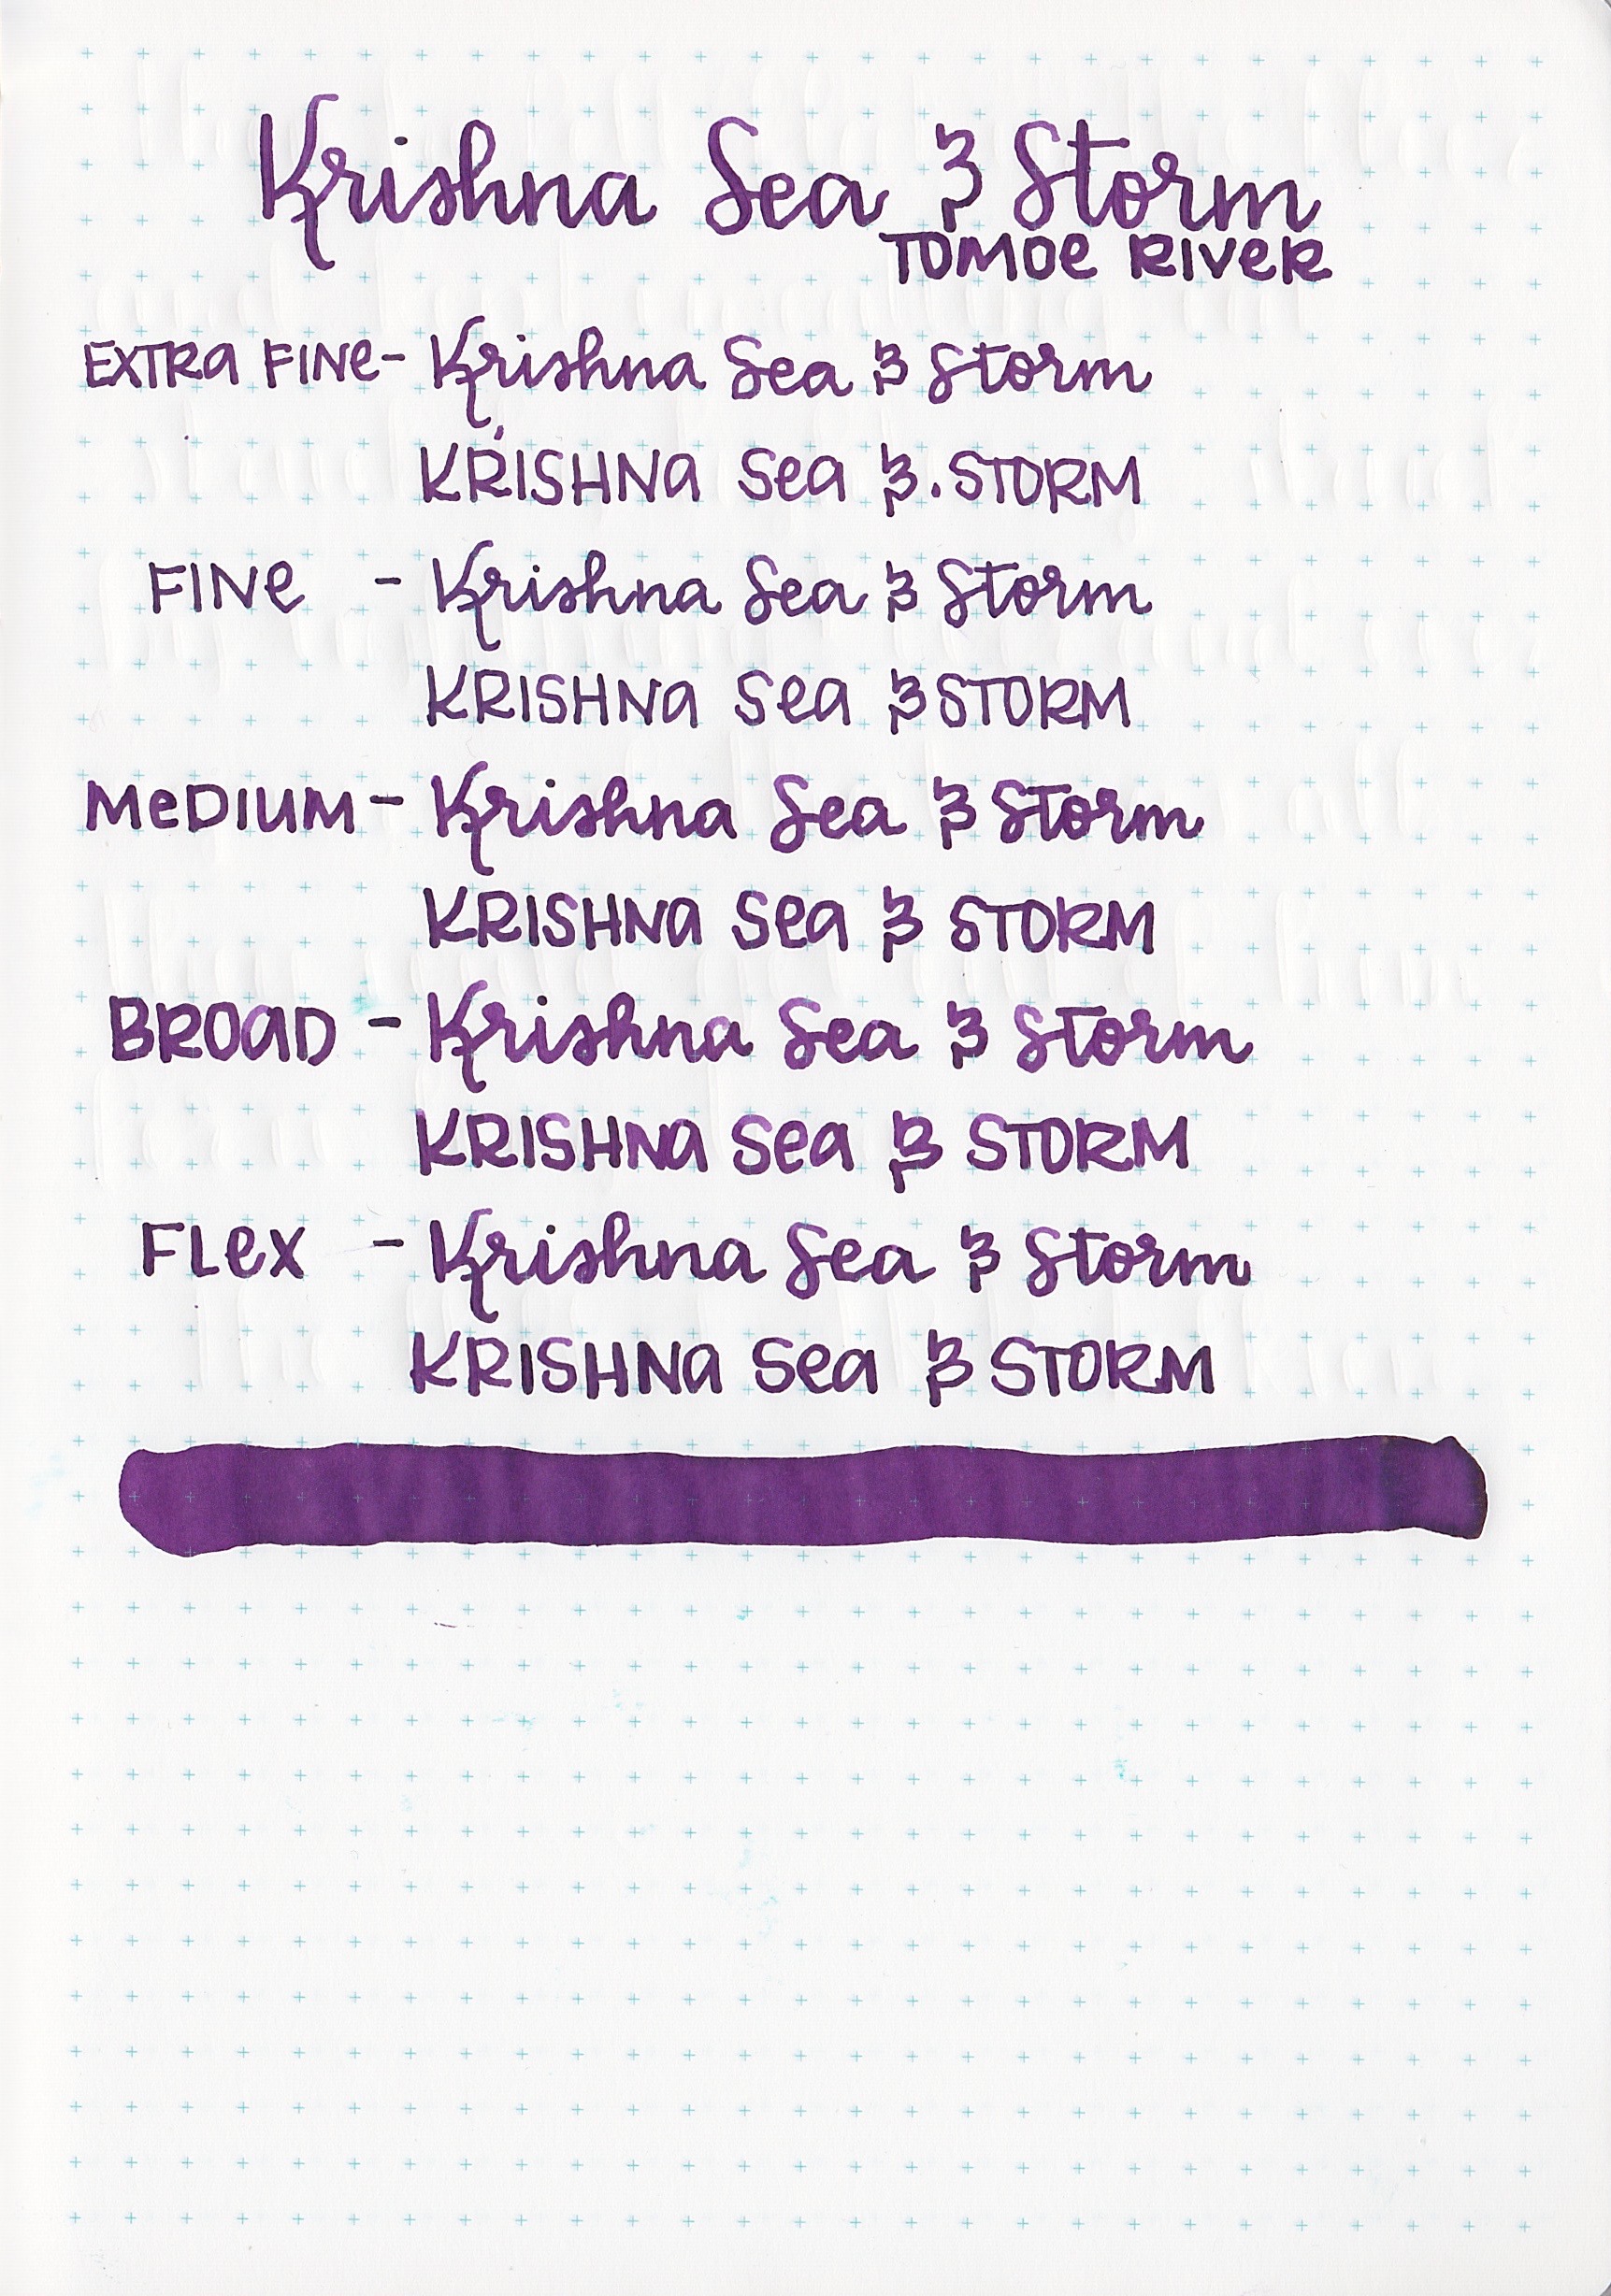 Krishna Sea & Storm
TOMOE RIVER
EXTRA FINE - Krishna Sea & Storm
KRISHNA Sea & STORM
FINE - Krishna Sea & Storm
KRISHNA Sea & STORM
MEDIUM - Krishna Sea & Storm
KRISHNA Sea & STORM
BROAD - Krishna Sea & Storm
KRISHNA Sea & STORM
FLEX - Krishna Sea & Storm
KRISHNA Sea & STORM